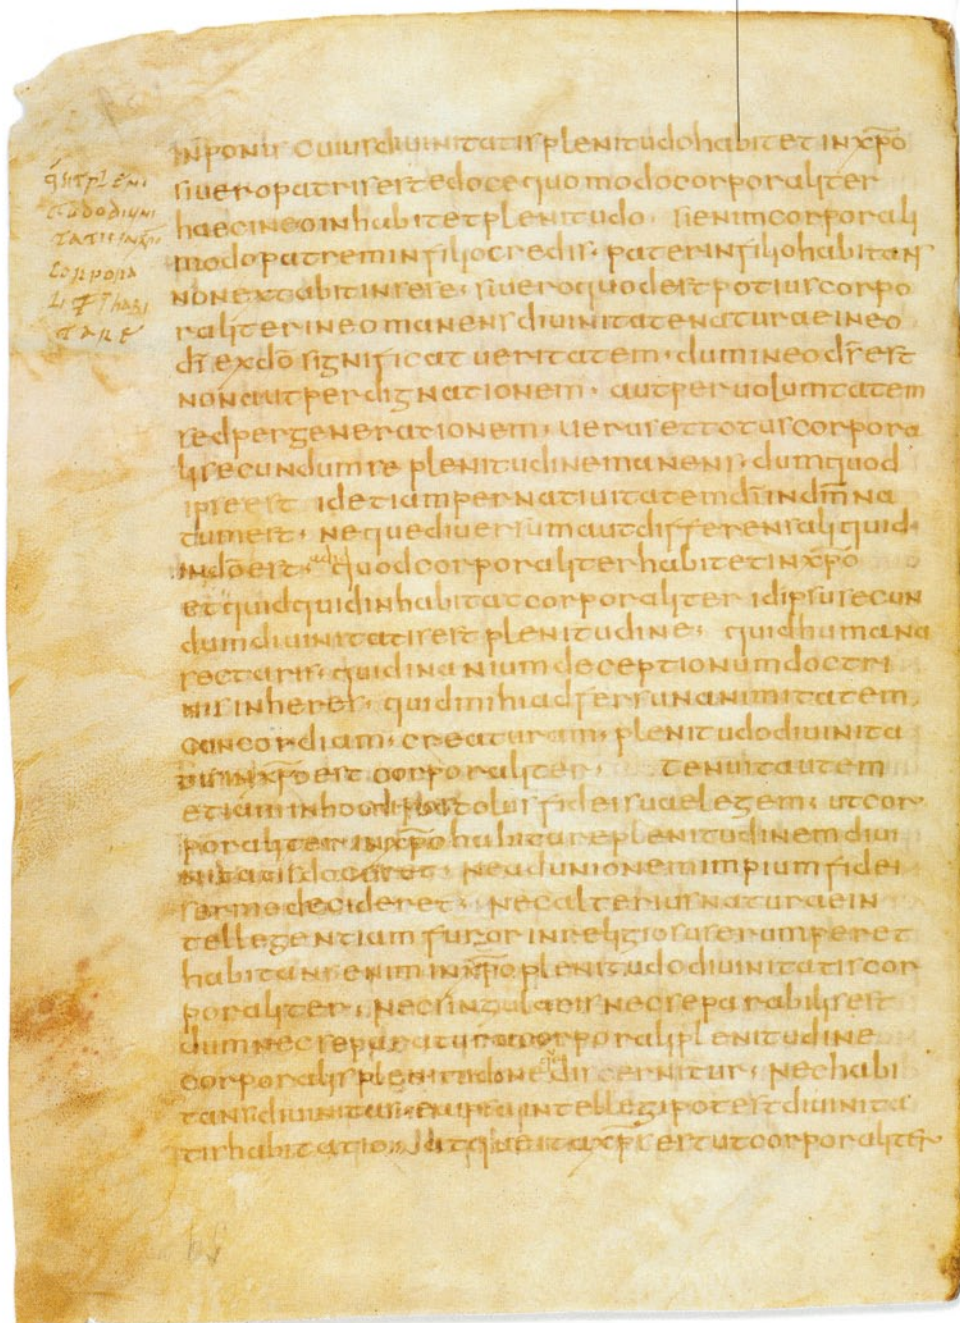 q̄ sit pleni
tudo diuini
tatis in xp̄o
corpora
lit̄ habi
tare
inponis cuius diuinitatis plenitudo habitet in xp̄o
si uero patris est edoce quo modo corporaliter
haec in eo inhabitet plenitudo si enim corporali
modo patrem in filio credis · pater in filio habitans
non extabit in sese · si uero quod est potius corpo
raliter in eo manens diuinitate naturae in eo
dī ex dō significat ueritatem · dum in eo dī est
non aut per dignationem · aut per uoluntatem
sed per generationem · uerus et totus corpora
li secundum se plenitudine manens · dum quod
ipse est id etiam per natiuitatem dī in dm̄ na
tum est · neque diuersum aut differens aliquid
in dō est · quod corporaliter habitet in xp̄o
et quidquid inhabitat corporaliter id ipsu secun
dum diuinitatis est plenitudine · quid humana
sectaris · quid inanium deceptionum doctri
nis inheres · quid mihi adfers unanimitatem
concordiam · creaturam · plenitudo diuinita
tis in xp̄o est corporaliter · tenuit autem
etiam in hoc apostolus fidei suae legem · ut cor
poraliter in xp̄o habitare plenitudinem diui
nitatis doceret · ne ad unionem impium fidei
sermo decideret · nec alterius naturae in
tellegentiam furor inreligiosus erumperet
habitans enim in xp̄o plenitudo diuinitatis cor
poraliter · nec singularis nec separabilis est
dum nec separatur a corporali plenitudine
corporalis plenitudo ne discernitur · nec habi
tans diuinitas intellegi potest diuinita
tis habitatio · xp̄s est ut corporaliter